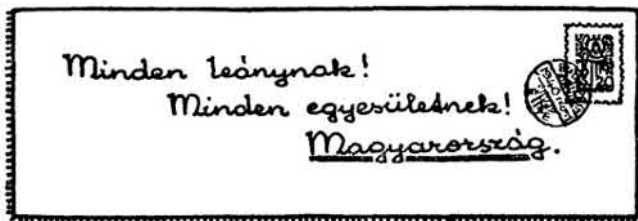 Minden leánynak!
Minden egyesületnek!
Magyarország.